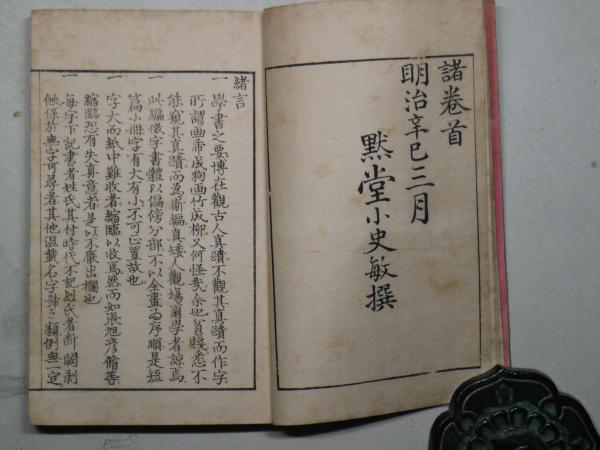 諸卷首
明治辛巳三月
默堂小史敏撰
緒言
一 學書之要博在觀古人真蹟不觀其真蹟而作字
所謂画虎成狗画竹成柳又何怪哉余也貧賤悉不
能窺其真蹟而為斯編真矮人觀場爾學者諒焉
一 此編從字書體以偏傍分部不以全畫為序順是短
篇小冊字有大有小不可正置故也
一 字大而紙中難收者縮臨以收焉然而如張旭彦脩等
縮臨恐有失真意者是以不厭出欄也
一 每字下記書者姓氏其付時代不記姓氏者斷闕剥
蝕係於無字可尋者其他混載名字號之類例無一定